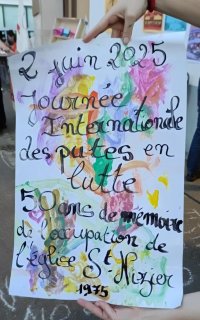 2 juin 2025
Journée
Internationale
des putes en
lutte
50 ans de memoire
de l'occupation de
l'église St-Nizier
1975